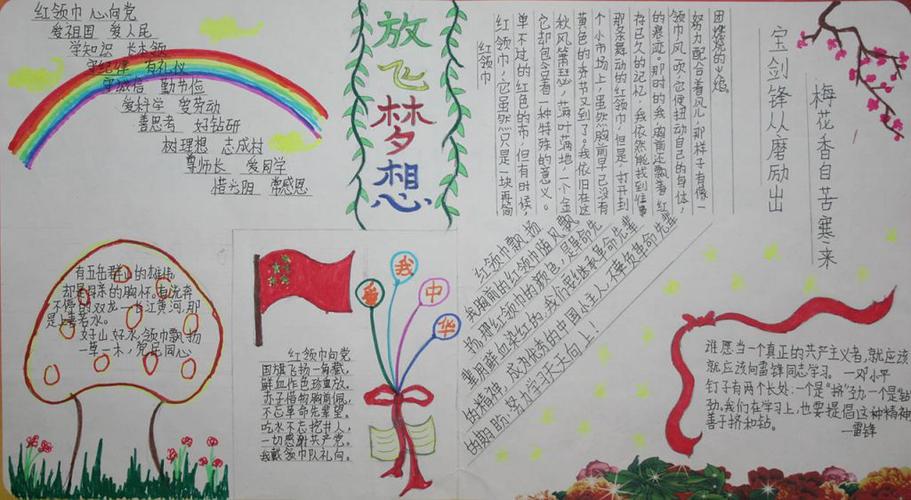 红领巾 心向党
爱祖国 爱人民
学知识 长本领
守纪律 有礼仪
守诚信 勤节俭
爱科学 爱劳动
善思考 好钻研
树理想 志成材
尊师长 爱同学
惜光阴 常感恩
放飞梦想
红领巾
红领巾，它虽然只是一块再简
单不过的红色的布，但有时候，
它却包含着一种特殊的意义。
秋风萧瑟，落叶满地，一个金
黄色的季节又到了。我依旧在这
个小市场上，虽然胸前早已没有
那条舞动的红领巾，但是，打开到
存已久的记忆，我依然能找到往事
的痕迹。那时的我，胸前还飘着红
领巾，风一吹，它便扭动自己的身体，
努力配合着风儿，那样子有像一
团燃烧的火焰。
宝剑锋从磨励出
梅花香自苦寒来
有五岳群山的雄伟
却是母亲的胸怀。有流奔
不停的双龙—长江黄河，那
是上善若水。
好山，好水，领巾飘扬
一草一木，
同心
爱我中华
红领巾向党
国旗飞扬一角藏，
鲜血作色珍重放。
赤子借物胸前佩，
不忘革命先辈望。
吃水不忘挖井人，
一切感谢共产党。
我戴领巾队礼向。
红领巾飘扬
我胸前的红领巾随风飘
扬，那红领巾的颜色，是革命先
辈用鲜血染红的，我们要继承革命先辈
的精神，成为优秀的中国小主人，不辜负革命先辈
的期盼，努力学习天天向上！
谁愿当一个真正的共产主义者，就应该
就应该向雷锋同志学习。—邓小平
钉子有两个长处：一个是“挤”劲，一个是“钻”
劲。我们在学习上，也要提倡这种精神
善于挤和钻。
—雷锋